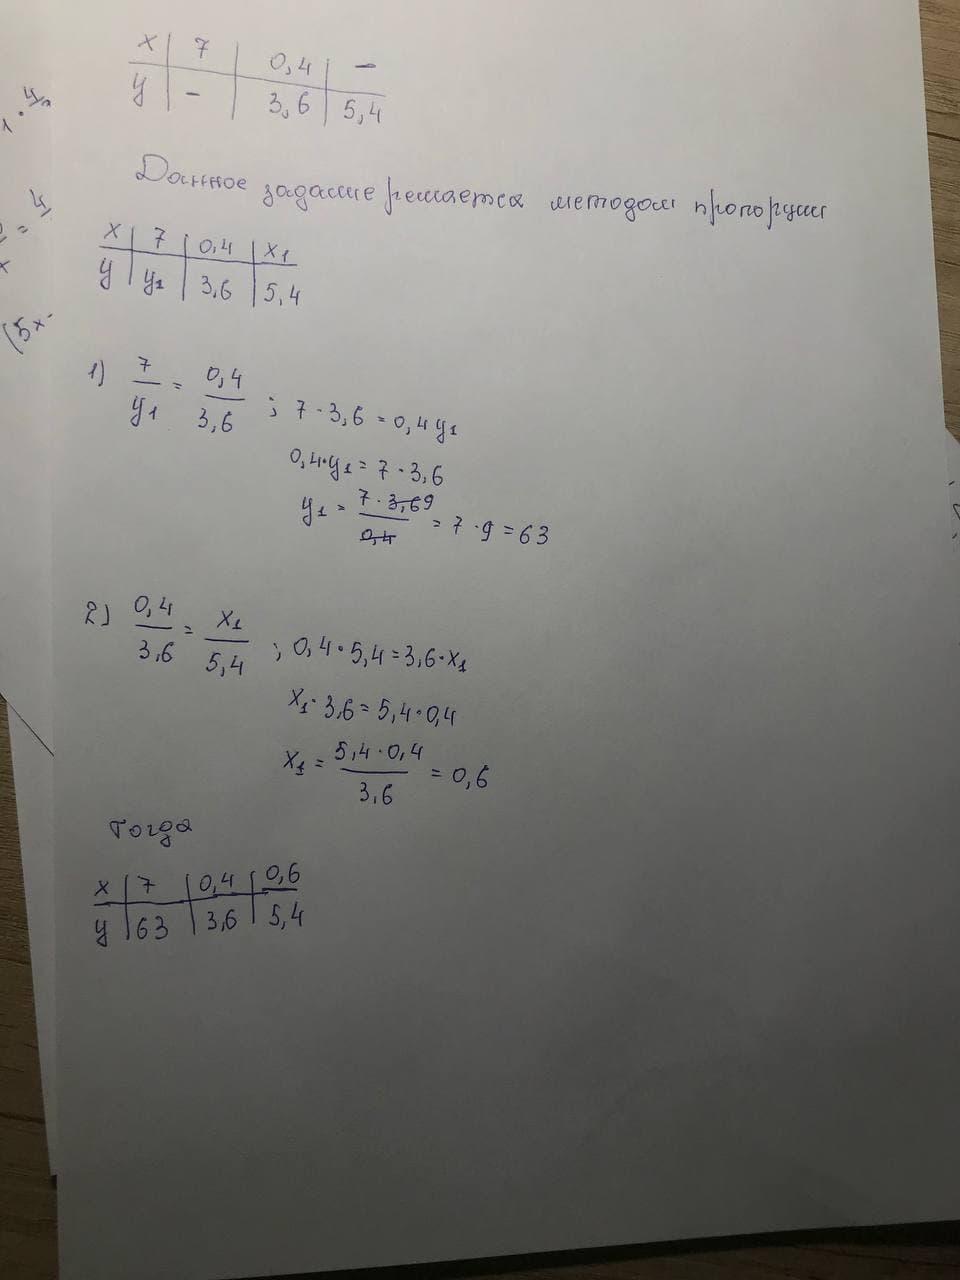 x 7 0,4 –
y – 3,6 5,4
Данное задание решается методом пропорции
x 7 0,4 x1
y y1 3,6 5,4
1) 7/y1 = 0,4/3,6 ; 7 · 3,6 = 0,4 y1
0,4·y1 = 7 · 3,6
y1 = 7 · 3,6 9/0,4 = 7 · 9 = 63
2) 0,4/3,6 = x1/5,4 ; 0,4 · 5,4 = 3,6 · x1
x1 · 3,6 = 5,4 · 0,4
x1 = 5,4 · 0,4/3,6 = 0,6
Тогда
x 7 0,4 0,6
y 63 3,6 5,4